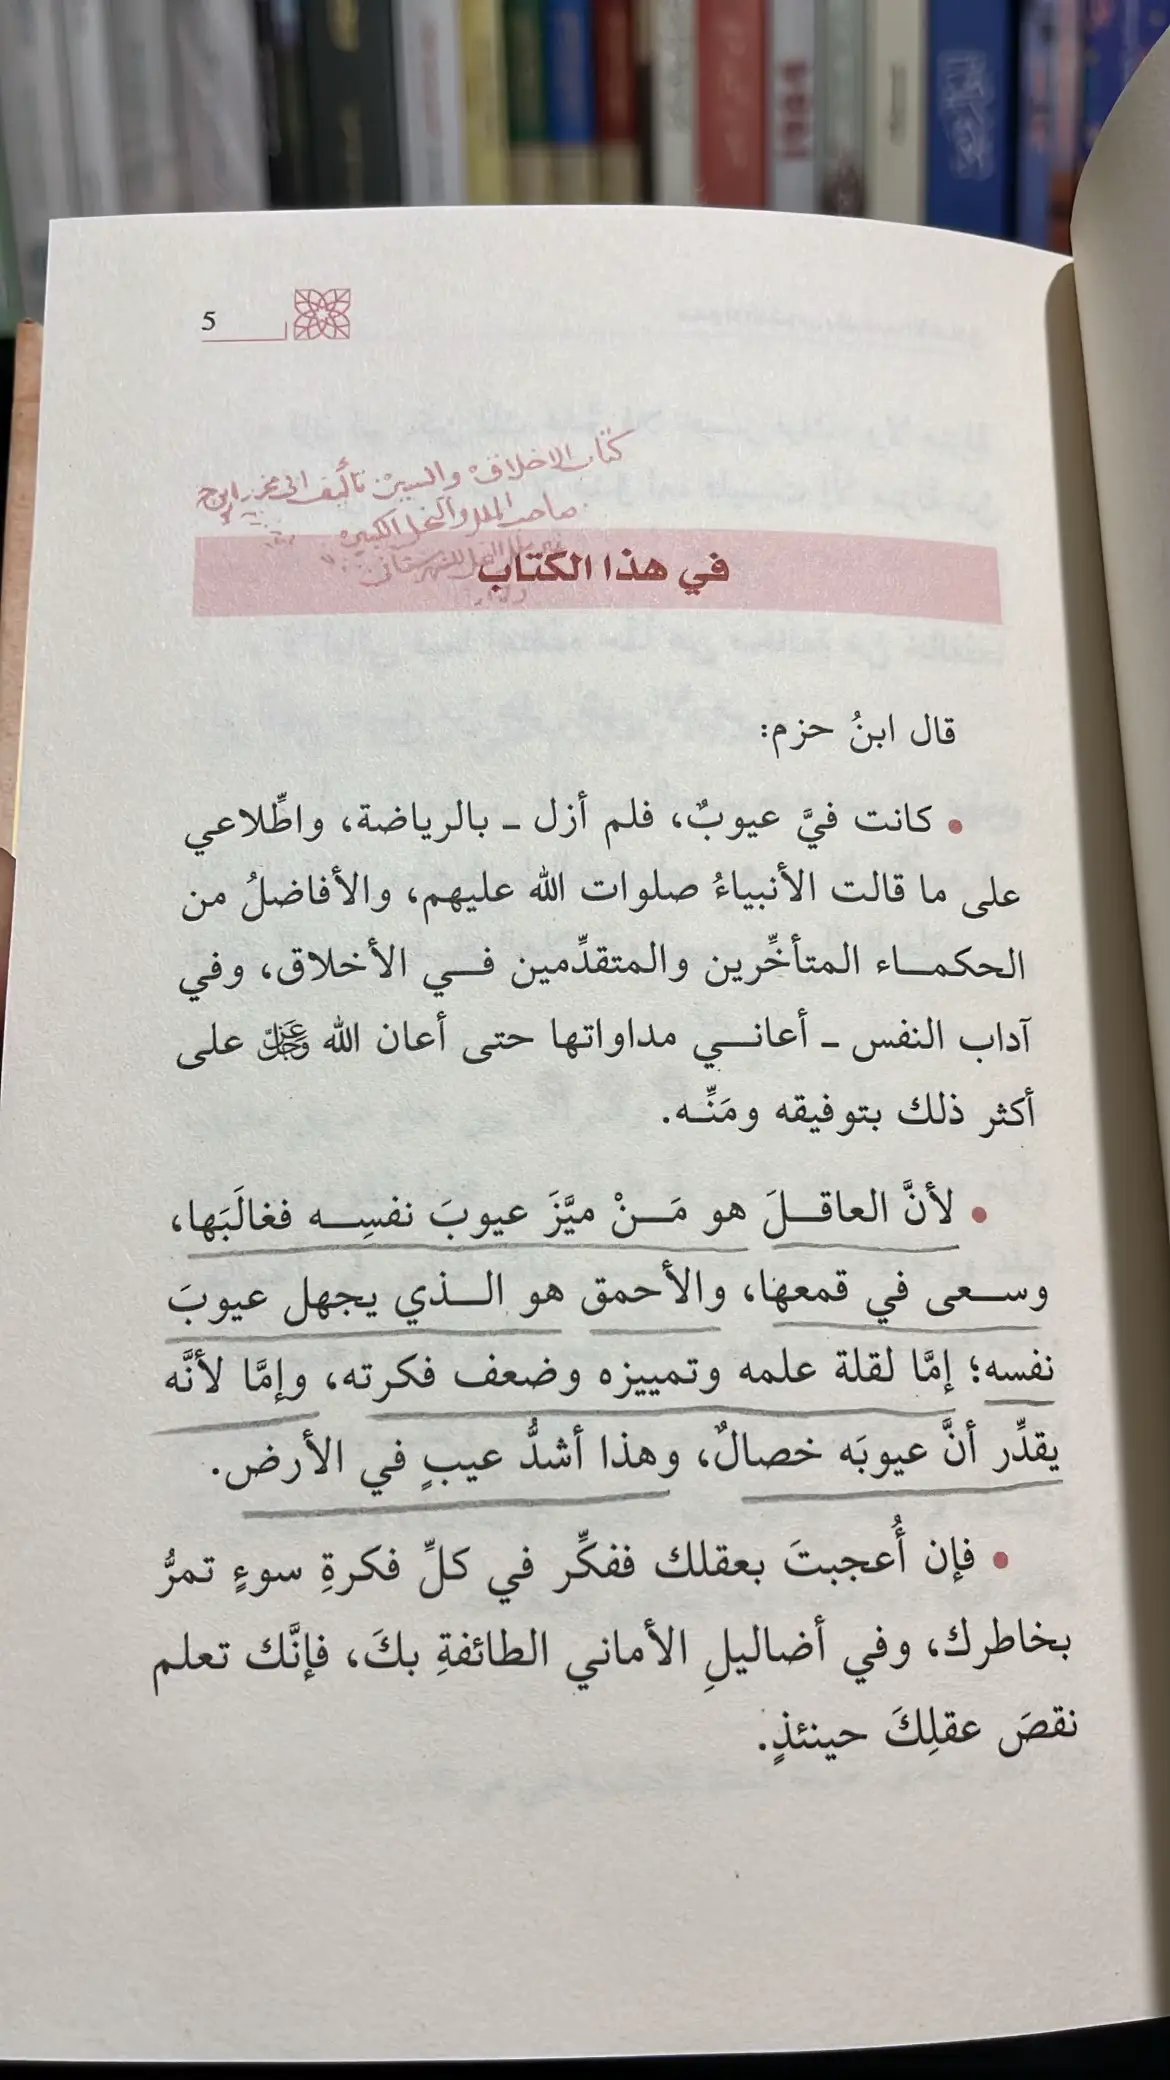 5
كتاب الاخلاق والسير تأليف ابى محمد ابن ح
صاحب الملل والنحل الكبير
في هذا الكتاب
قال ابنُ حزم:
• كانت فيَّ عيوبٌ، فلم أزل ـ بالرياضة، واطِّلاعي
على ما قالت الأنبياءُ صلوات الله عليهم، والأفاضلُ من
الحكمـاء المتأخِّرين والمتقدِّمين فـي الأخلاق، وفي
آداب النفس ـ أعانـي مداواتها حتى أعان الله عَزَّوَجَلَّ على
أكثر ذلك بتوفيقه ومَنِّـه.
• لأنَّ العاقـلَ هو مَـنْ ميَّزَ عيوبَ نفسِـه فغالَبَها،
وسـعى في قمعها، والأحمق هو الـذي يجهل عيوبَ
نفسه؛ إمَّا لقلة علمه وتمييزه وضعف فكرته، وإمَّا لأنَّه
يقدِّر أنَّ عيوبَه خصالٌ، وهذا أشدُّ عيبٍ في الأرض.
• فإن أُعجبتَ بعقلك ففكِّر في كلِّ فكرةِ سوءٍ تمرُّ
بخاطرك، وفي أضاليلِ الأماني الطائفةِ بكَ، فإنَّك تعلم
نقصَ عقلِكَ حينئذٍ.